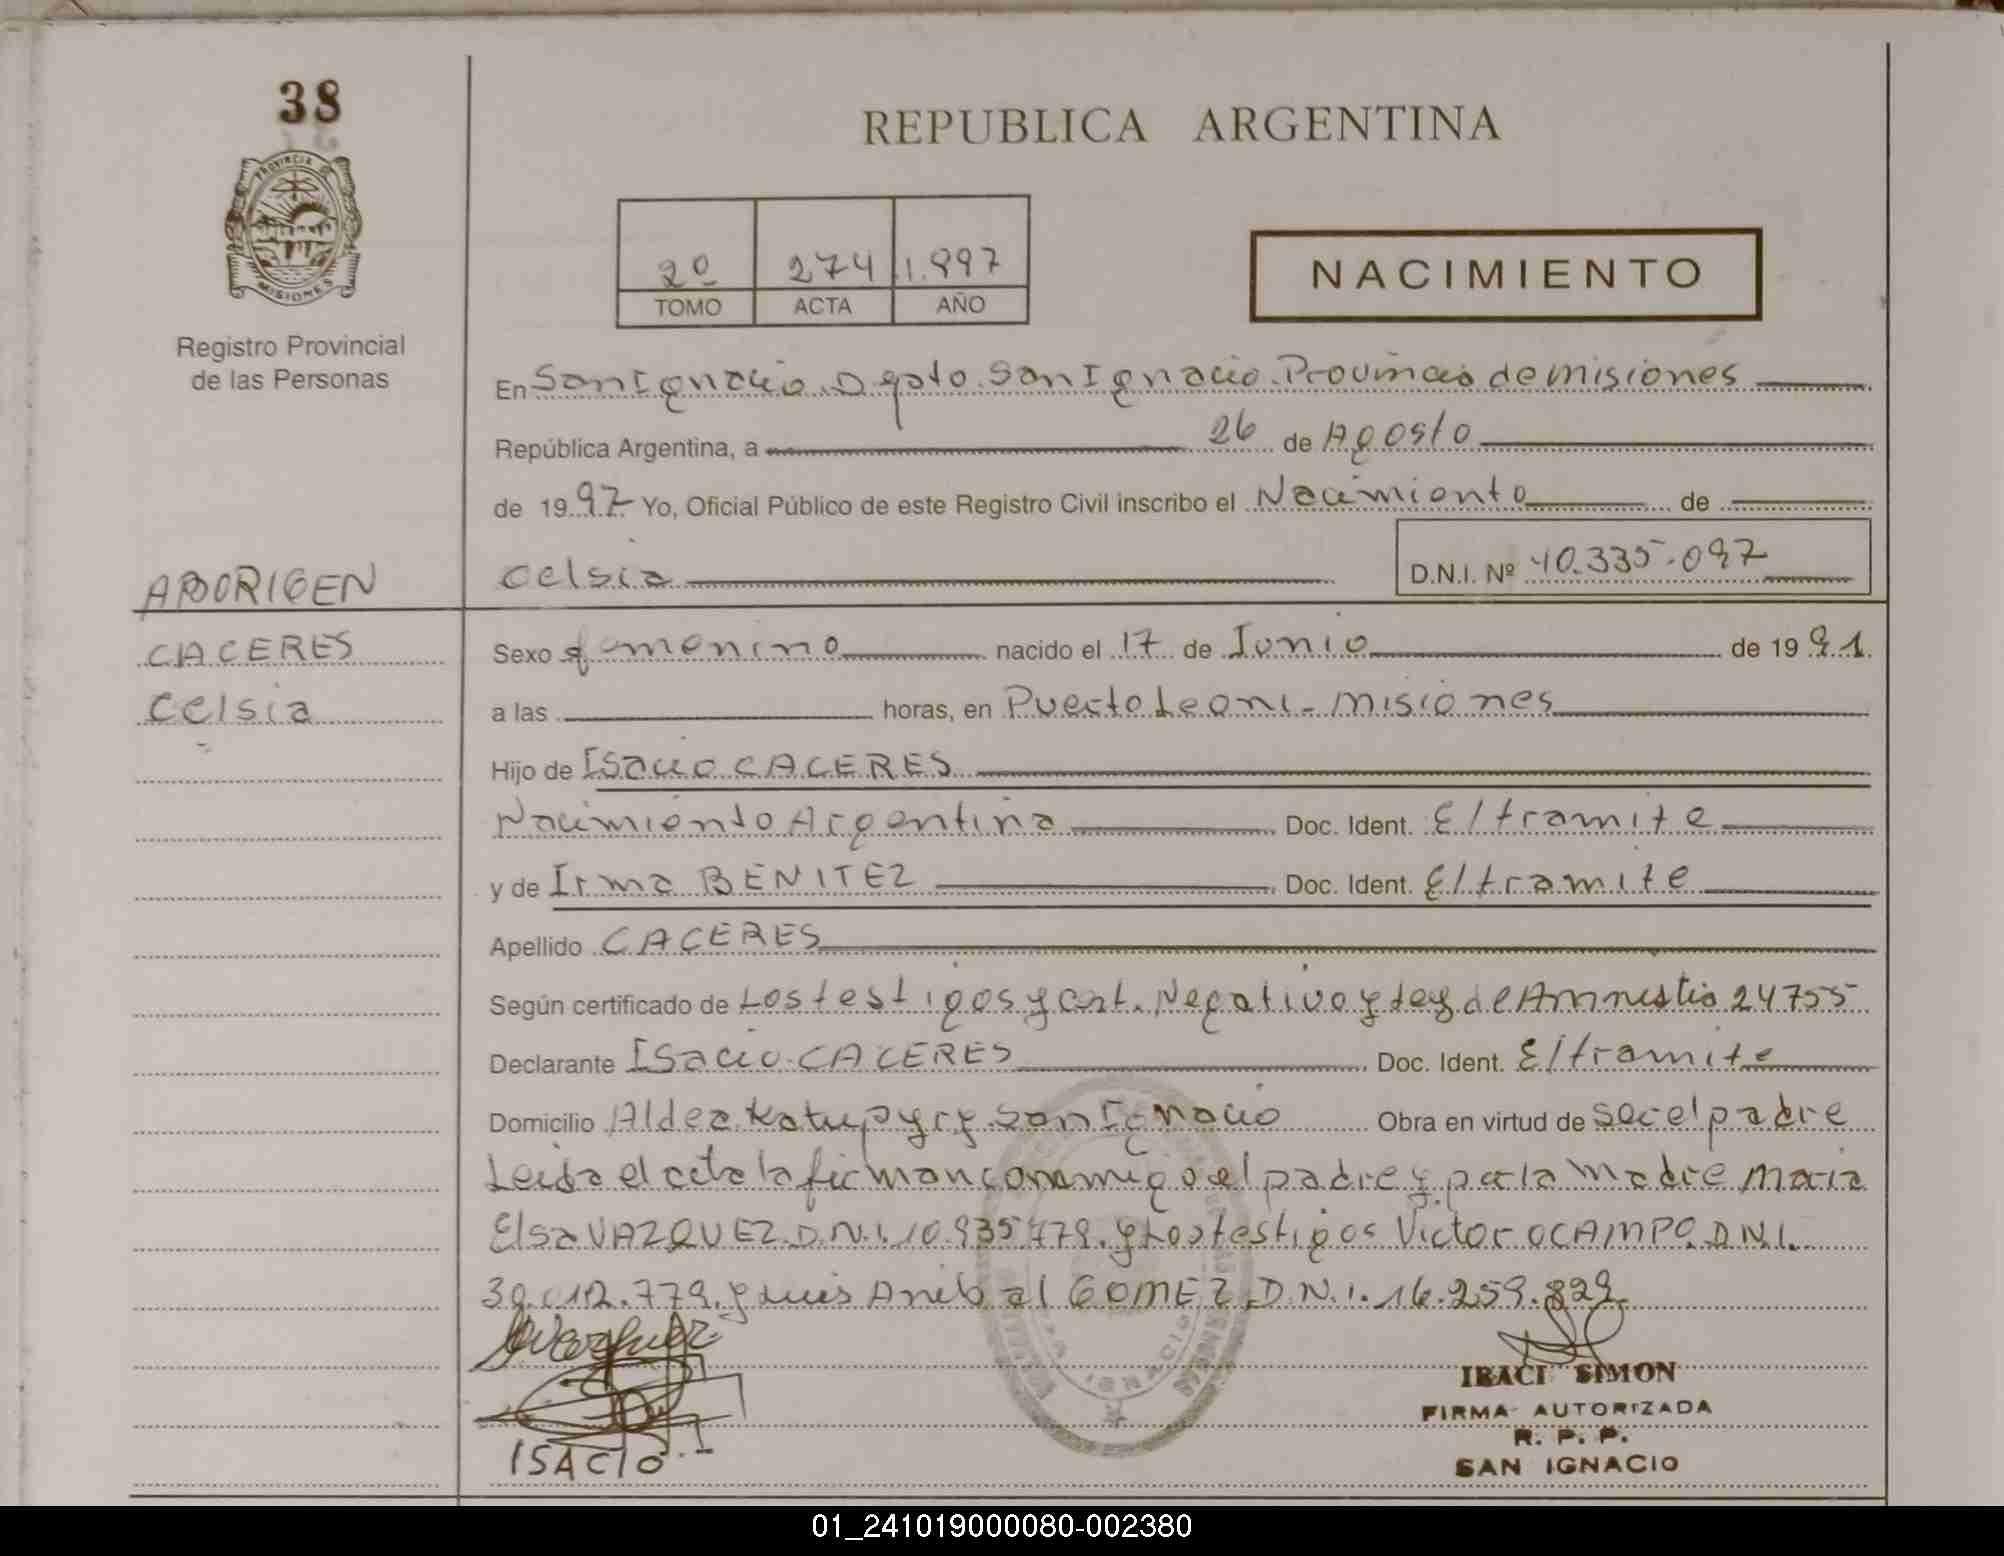 38
PROVINCIA DE
MISIONES
Registro Provincial
de las Personas
REPUBLICA ARGENTINA
2º 274 1.997
TOMO ACTA AÑO
NACIMIENTO
En San Ignacio. Dpto. San Ignacio. Provincia de misiones
República Argentina, a 26 de Agosto
de 1997 Yo, Oficial Público de este Registro Civil inscribo el Nacimiento de
Celsia D.N.I. Nº 40.335.097
ABORIGEN
CACERES
Celsia
Sexo femenino nacido el 17 de Junio de 1991.
a las horas, en Puerto Leoni - misiones
Hijo de Isacio CACERES
Nacimiento Argentina Doc. Ident. E/tramite
y de Irma BENITEZ Doc. Ident. E/tramite
Apellido CACERES
Según certificado de Los testigos y cert. Negativo y Ley de Amnistia 24755
Declarante Isacio CACERES Doc. Ident. E/tramite
Domicilio Aldea Katupyry San Ignacio Obra en virtud de ser el padre
Leida el acta la firman conmigo el padre y por la madre Maria
Elsa VAZQUEZ D.N.I. 10.935779. y Los testigos Victor OCAMPO. D.N.I.
30.012.779. y Luis Anibal GOMEZ D.N.I. 16.259.829
ISACIO
IRACI SIMON
FIRMA AUTORIZADA
R. P. P.
SAN IGNACIO
01_241019000080-002380